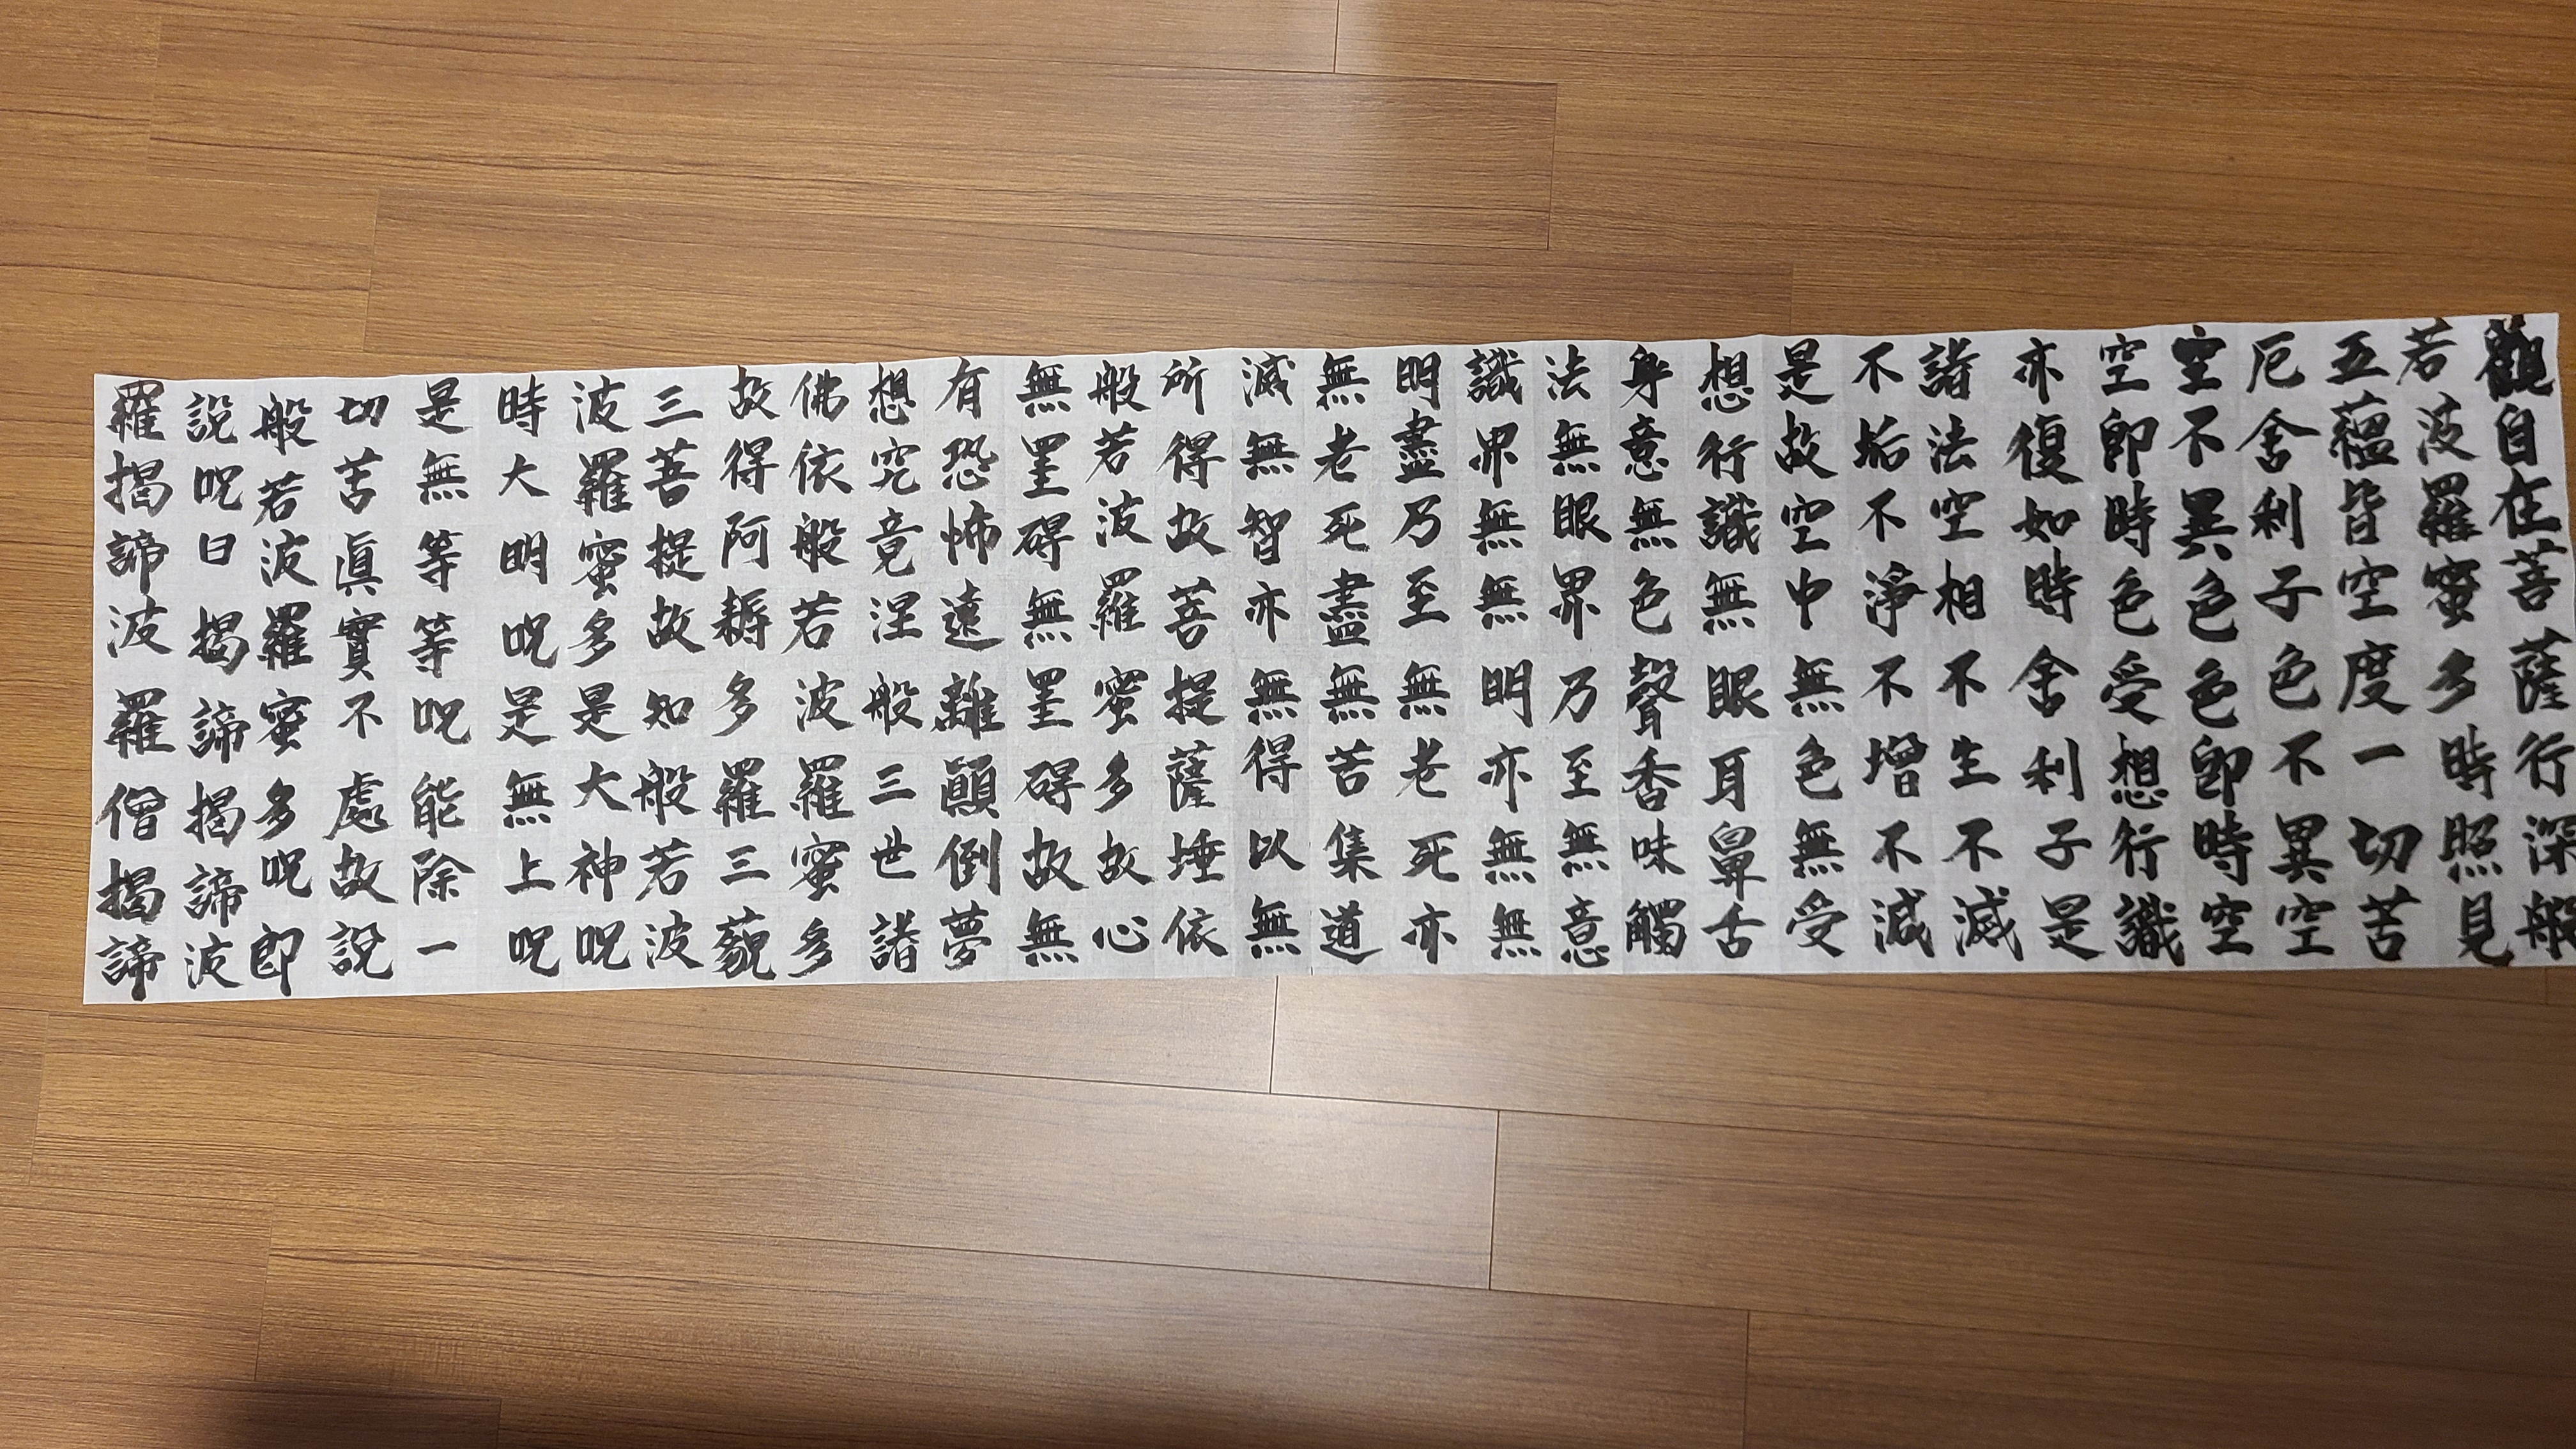 觀自在菩薩行深般
若波羅蜜多時照見
五蘊皆空度一切苦
厄舍利子色不異空
空不異色色即時空
空即時色受想行識
亦復如時舍利子是
諸法空相不生不滅
不垢不淨不增不減
是故空中無色無受
想行識無眼耳鼻舌
身意無色聲香味觸
法無眼界乃至無意
識界無無明亦無無
明盡乃至無老死亦
無老死盡無苦集道
滅無智亦無得以無
所得故菩提薩埵依
般若波羅蜜多故心
無罣碍無罣碍故無
有恐怖遠離顚倒夢
想究竟涅般三世諸
佛依般若波羅蜜多
故得阿耨多羅三藐
三菩提故知般若波
波羅蜜多是大神呪
時大明呪是無上呪
是無等等呪能除一
切苦眞實不處故說
般若波羅蜜多呪即
說呪曰揭諦揭諦波
羅揭諦波羅僧揭諦